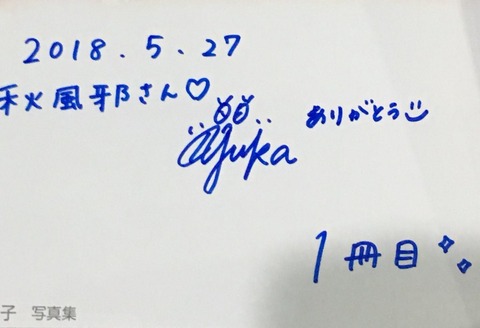 2018.5.27
秋風邪さん♡
ありがとう
1冊目
子 写真集